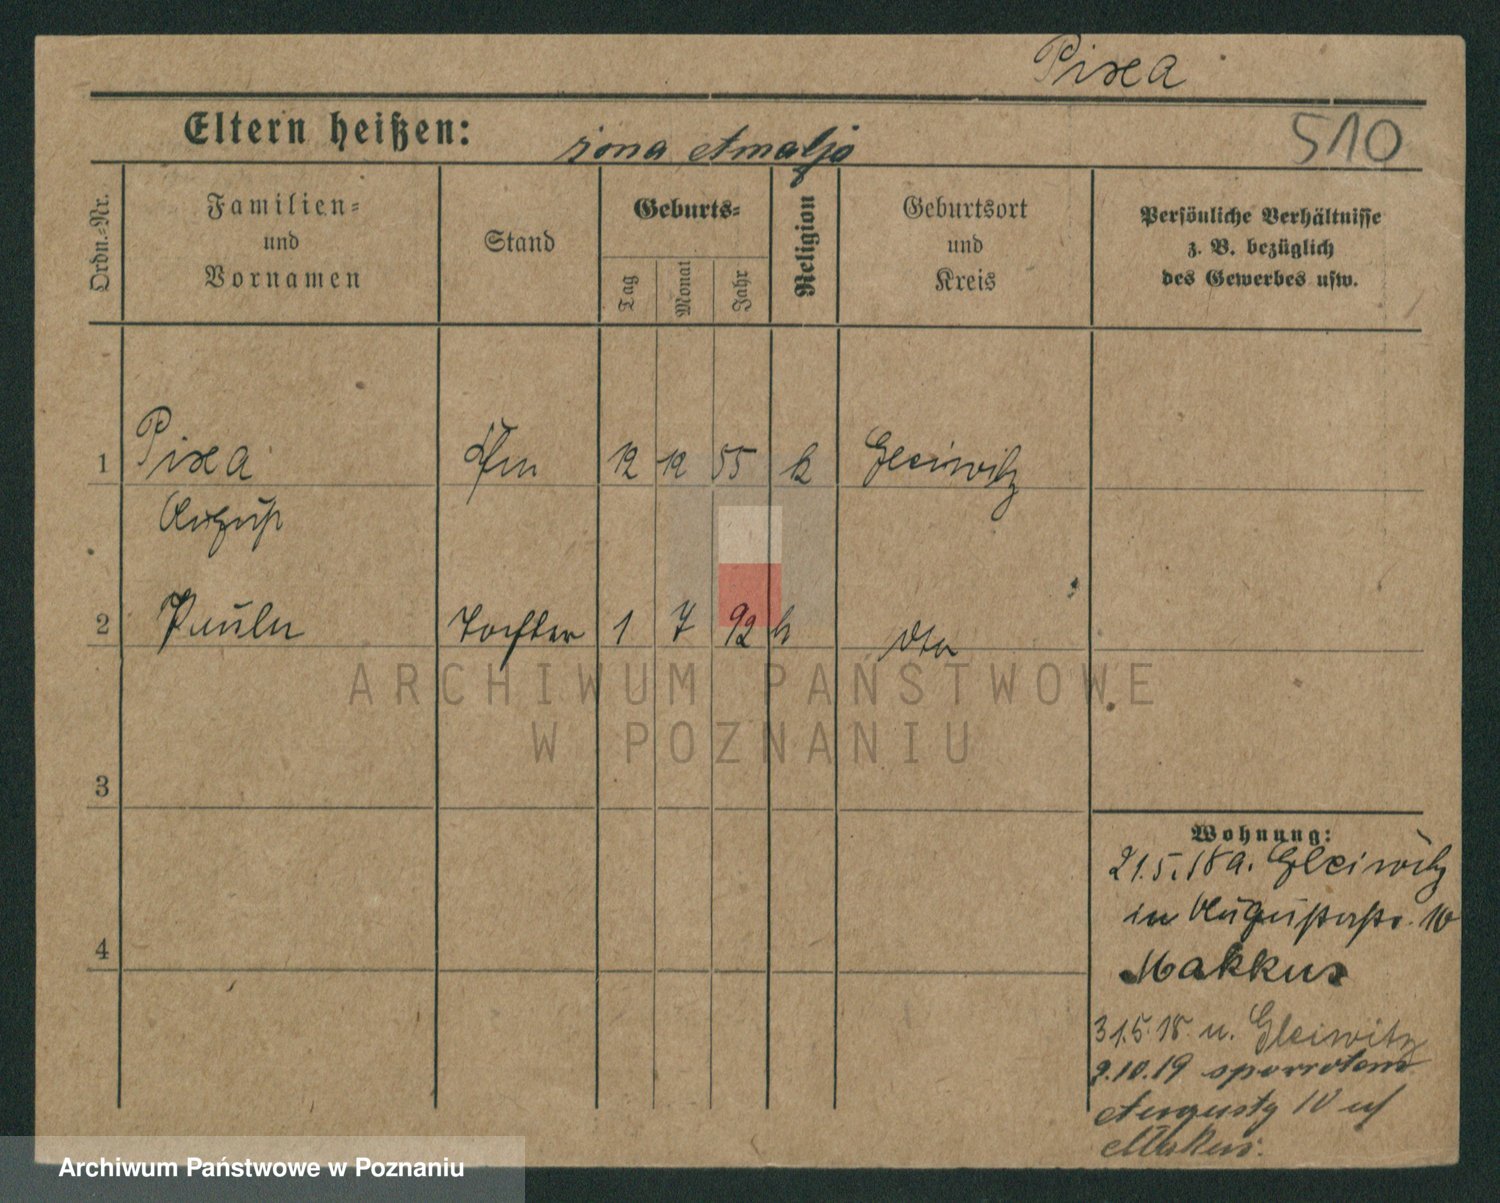 Pixa
Eltern heißen: żona Amalja
510
Ordn.-Nr.
Familien-
und
Vornamen
Stand
Geburts-
Tag
Monat
Jahr
Religion
Geburtsort
und
Kreis
Persönliche Verhältnisse
z. B. bezüglich
des Gewerbes usw.
1 Pixa 12 12 55 k Gleiwitz
August
2 Paula Tochter 1 7 92 k dto
3
4
Wohnung:
21.5.18 a. Gleiwitz
in Augustastr. 10
Makkus
31.5.18 n. Gleiwitz
2.10.19 spowrotem
Augusty 10 u/
Makus.
ARCHIWUM PAŃSTWOWE
W POZNANIU
Archiwum Państwowe w Poznaniu